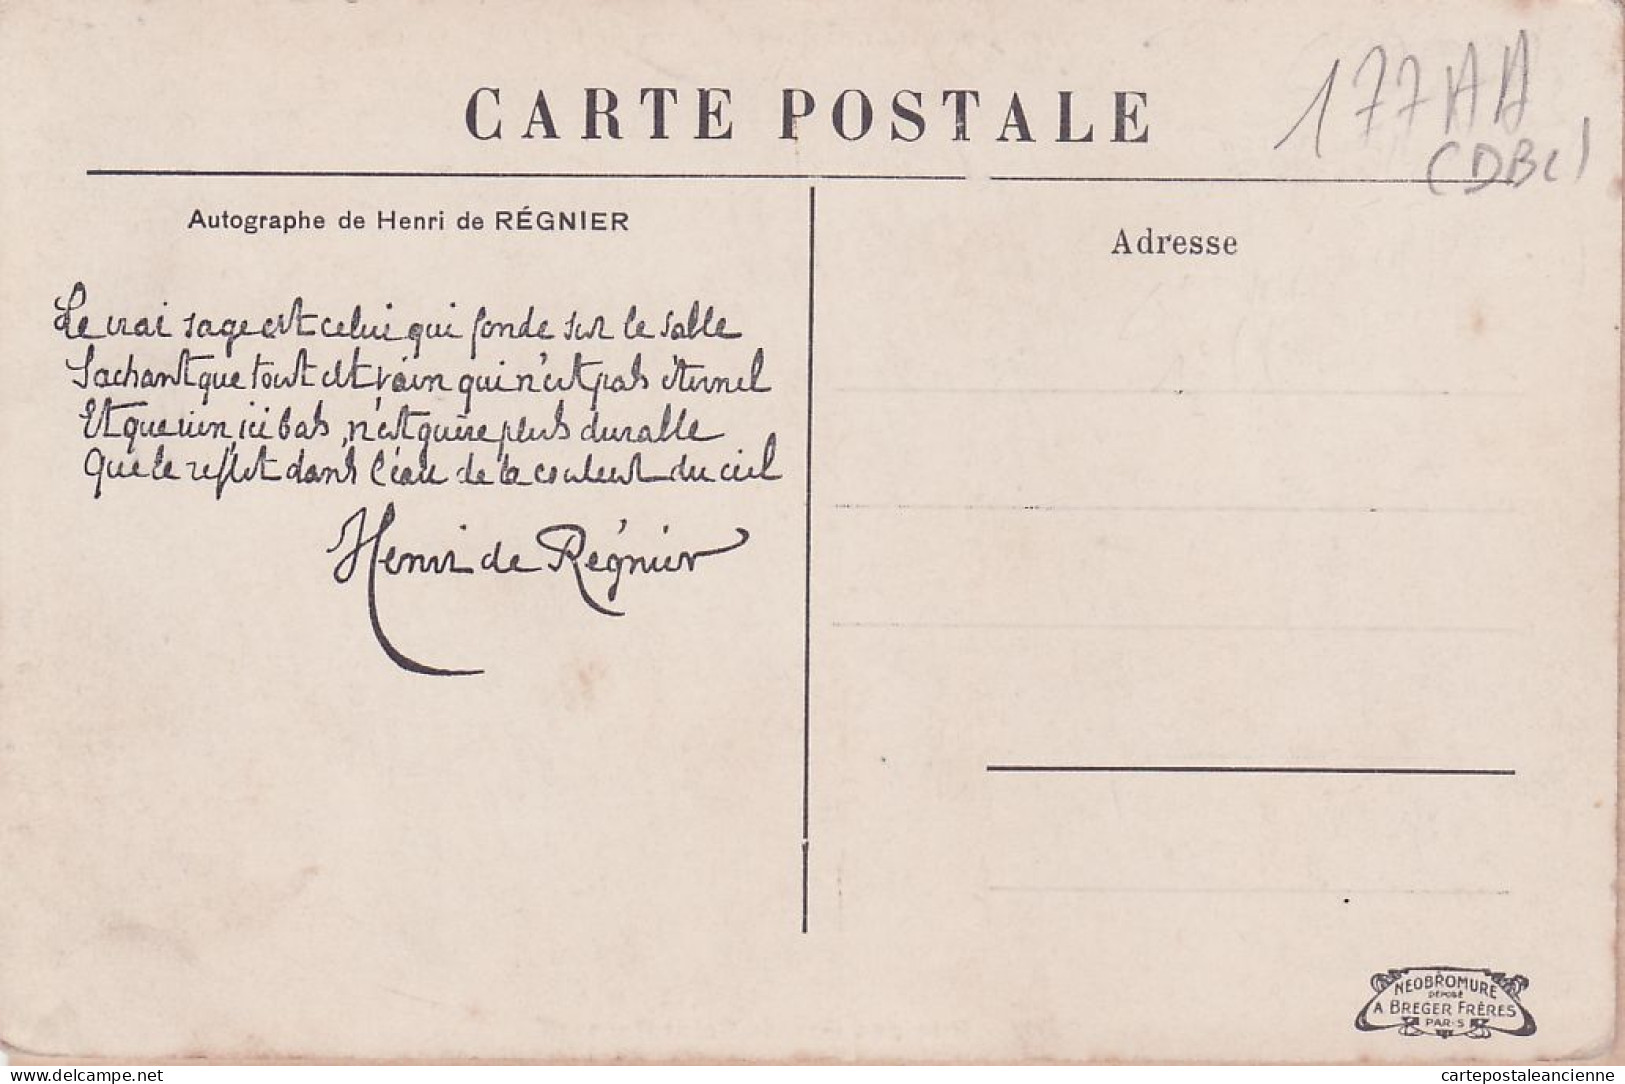 CARTE POSTALE
177AA
(DBC)
Autographe de Henri de RÉGNIER
Le vrai sage est celui qui fonde sur le sable
Sachant que tout est vain qui n'est pas éternel
Et que rien, ici bas, n'est guère plus durable
Que le reflet dans l'eau de la couleur du ciel
Henri de Régnier
Adresse
NEOBROMURE
DÉPOSÉ
A BREGER FRÈRES
PARIS
delcampe.net
cartepostaleancienne